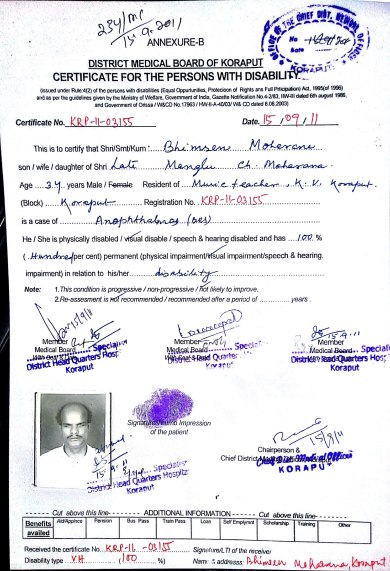 234/MC
15.9.2011
OFFICE OF THE CHIEF DIST. MEDICAL OFFICER
No
Date
KORAPUT
ANNEXURE-B
DISTRICT MEDICAL BOARD OF KORAPUT
CERTIFICATE FOR THE PERSONS WITH DISABILITY
(issued under Rule 4(2) of the persons with disabilities (Equal Opportunities, Potection of Rights and Full Pricipation) Act, 1995(of 1996)
and as per the guidelines given by the Ministry of Welfare, Government of India, Gazette Notification No.4-2/83, IIW-III dated 6th august 1986,
and Government of Orissa / W&CO No.17963 / IIW-II-A-40/03/ W& CO dated 8.08.2003)
Certificate No. KRP-11-03155 Date. 15/09/11
This is to certify that Shri/Smt/Kum : Bhimsen Moharana
son / wife / daughter of Shri Late Menglu Ch. Moharana.
Age 34 years Male / Female Resident of Music teacher, K.V. Koraput.
(Block) Koraput Registration No. KRP-11-03155
is a case of Anophthalmos (BES)
He / She is physically disabled / visual disable / speech & hearing disabled and has 100 %
(Hundred per cent) permanent (physical impairment/visual impairment/speech & hearing
impairment) in relation to his/her disability
Note: 1.This condition is progressive / non-progressive / not likely to improve.
2.Re-assesment is not recommended / recommended after a period of years .
Member Member Member
Medical Board Medical Board Medical Board
Specialist
District Head Quarters Hospital
Koraput
Specialist
District Head Quarters Hospital
Koraput
Specialist
District Head Quarters Hospital
Koraput
Signature/thumb Impression
of the patient
Specialist
District Head Quarters Hospital
Koraput
15/9/11
Chairperson &
Chief District Medical Officer
KORAPUT
Cut above this line ADDITIONAL INFORMATION Cut above this line
Benefits availed Aid/Applnce Pension Bus Pass Train Pass Loan Self Emplymnt Scholarship Training Other
Received the certificate No. KRP-11-03155 Signature/LTI of the receiver
Disability type VH (100 %) Name & address: Bhimsen Moharana, Koraput